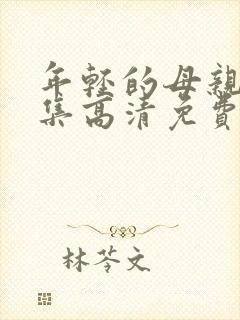 年轻的母親
集高清免費
林苓文